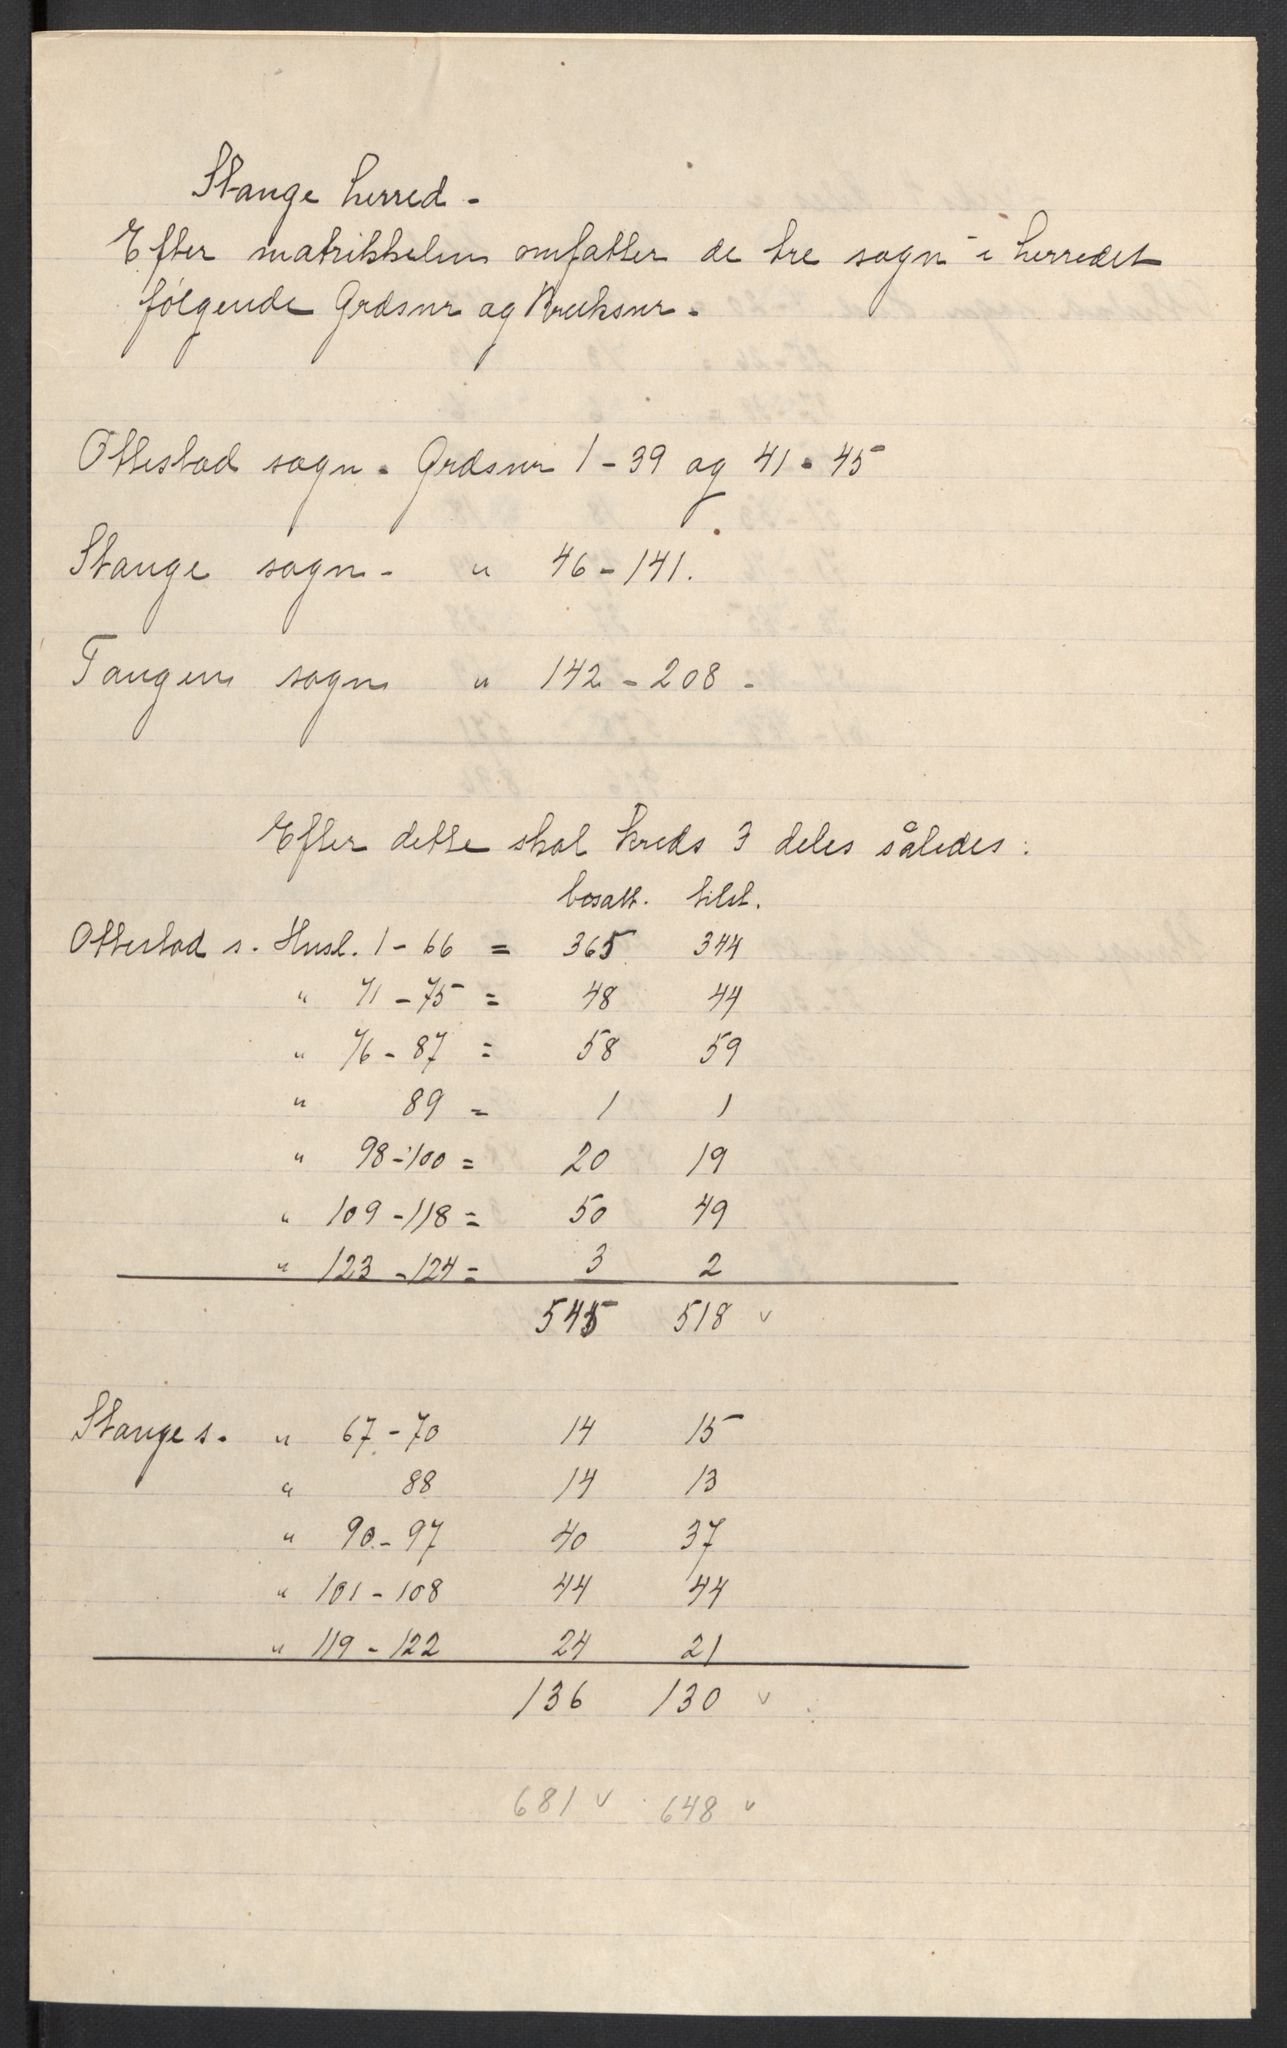 Stange herred -
Efter matrikkelen omfatter de tre sogn i herredet
følgende Grdsnr og Bruksnr.
Ottestad sogn - Grdsnr 1 - 39 og 41 - 45
Stange sogn - " 46 - 141.
Tangen sogn " 142 - 208 -
Efter dette skal kreds 3 deles således:
bosatt. tilst.
Ottestad s. Husl. 1 - 66 = 365 344
" 71 - 75 = 48 44
" 76 - 87 = 58 59
" 89 = 1 1
" 98 - 100 = 20 19
" 109 - 118 = 50 49
" 123 - 124 = 3 2
545 518 v
Stange s. " 67 - 70 14 15
" 88 14 13
" 90 - 97 40 37
" 101 - 108 44 44
" 119 - 122 24 21
136 130 v
681 v 648 v